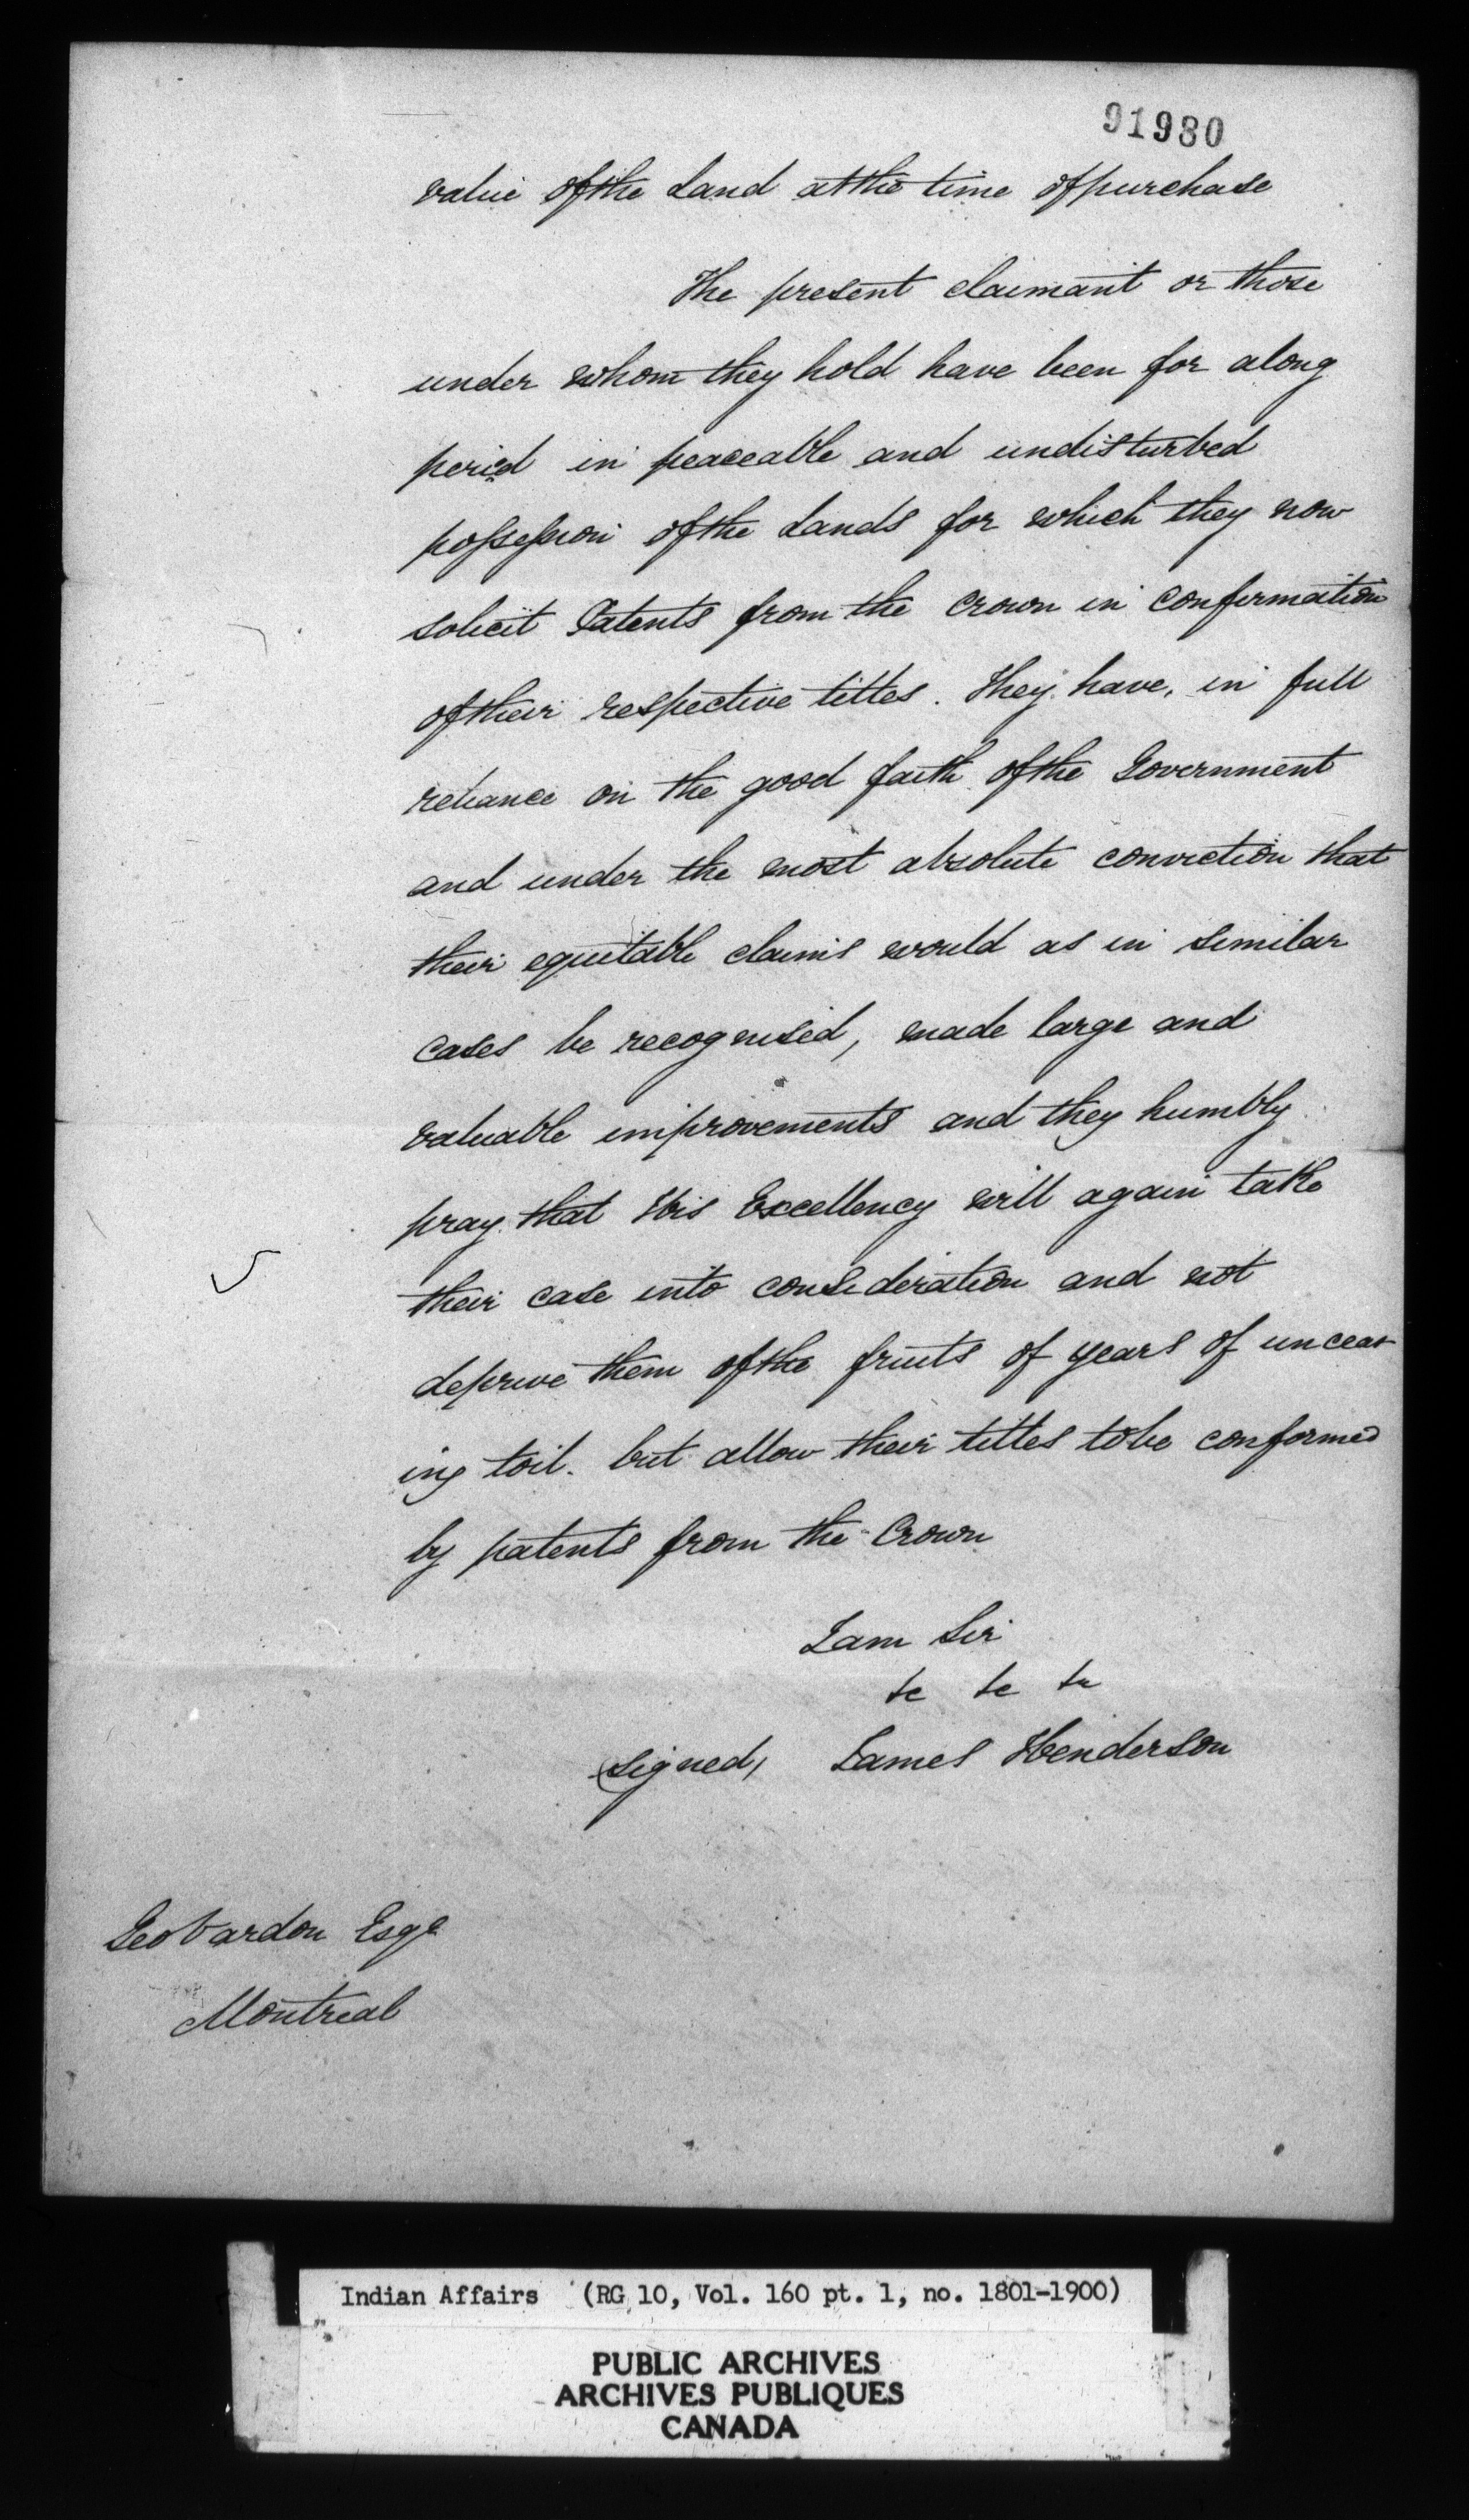 91980
value of the Land at the time of purchase
The present claimant or those
under whom they hold have been for along
period in peaceable and undisturbed
possession of the Lands for which they now
solicit Patents from the Crown in confirmation
of their respective titles. They have, in full
reliance on the good faith of the Government
and under the most absolute conviction that
their equitable claims would as in similar
cases be recognised, made large and
valuable improvements and they humbly
pray that His Excellency will again take
their case into consideration and not
deprive them of the fruits of years of unceas
ing toil. but allow their titles to be conformed
by patents from the Crown
I am Sir
&c &c &c
(signed) James Henderson
Geo Vardon Esqr
Montreal
Indian Affairs (RG 10, Vol. 160 pt. 1, no. 1801-1900)
PUBLIC ARCHIVES
ARCHIVES PUBLIQUES
CANADA